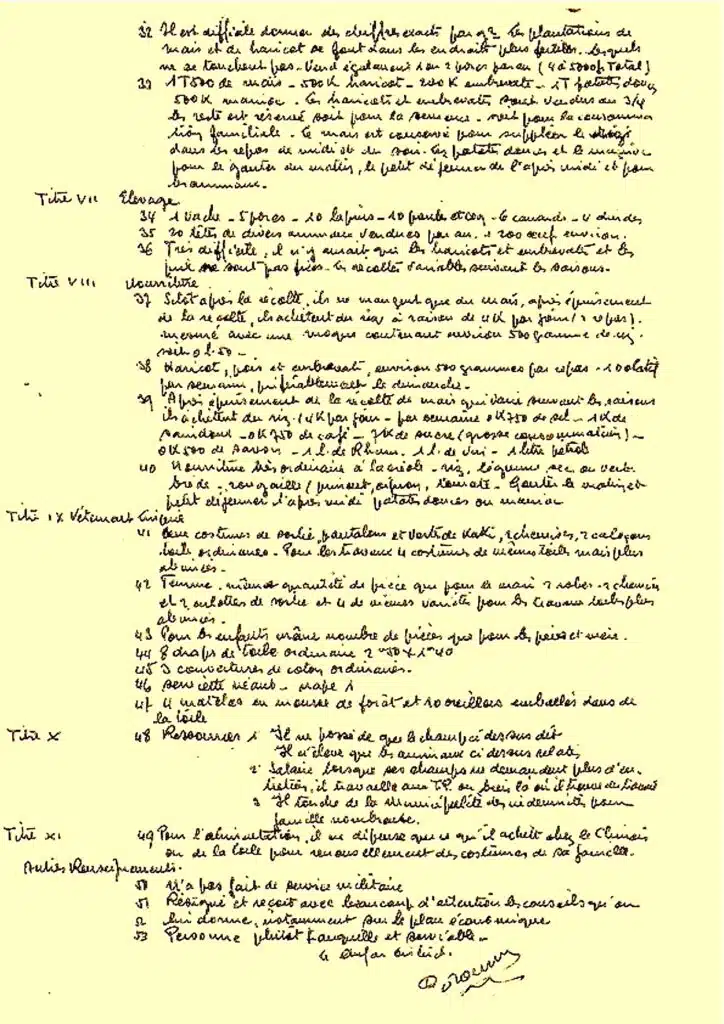 32 Il est difficile donner des chiffres exacts par q². Les plantations de
maïs et de haricot se font dans les endroits plus fertiles. Lesquels
ne se touchent pas - Vend également 1 ou 2 porcs par an (4 à 5000f. Total)
33 1T500 de maïs - 500K haricot - 200K embrevate - 1T patates douces
500K manioc - Les haricots et embrevates sont vendus au 3/4
le reste est réservé soit pour la semence - soit pour la consomma
tion familiale. Le maïs est conservé pour suppléer le
dans les repas de midi et du soir. Les patates douces et le manioc
pour le goûter du matin, le petit déjeuner de l'après midi et pour
les animaux.
Titre VII Elevage
34 1 vache - 5 porcs - 10 lapins - 10 poules et coq - 6 canards - 4 dindes
35 20 têtes de divers animaux vendues par an. + 200 œuf environ.
36 Très difficile, il n'y aurait que les haricots et embrevates et les
prix ne sont pas fixes - les récoltes variables suivant les saisons.
Titre VIII Nourriture
37 Sitôt après la récolte, ils ne mangent que du maïs, après épuisement
de la récolte, ils achètent du riz à raison de 4K par jour (2 repas).
mesuré avec une moque contenant environ 500 gramme de riz
soit 0 l. 50 -
38 Haricot, pois et embrevate, environ 500 grammes par repas -
par semaine, préférablement le dimanche.
39 Après épuisement de la récolte de maïs qui varie suivant les saisons
ils achètent du riz. (4K par jour - par semaine 0K750 de sel - 1K de
saindoux - 0K750 de café - 7K de sucre (grosse consommation) -
0K500 de savon - 1 l. de Rhum. 1 l. de vin - 1 litre pétrole
40 Nourriture très ordinaire à la créole - riz, légume sec ou vert
brède - rougaille (piment, oignon, tomate - Goûter le matin et
petit déjeuner l'après midi patates douces ou manioc
Titre IX Vêtement Lingerie
41 Deux costumes de sortie, pantalons et veste de Kaki, 2 chemises, 2 caleçons
toile ordinaires - Pour les travaux 4 costumes de mêmes toiles mais plus
abimées -
42 Femme. même quantité de pièce que pour le mari 2 robes - 2 chemises
et 2 culottes de sortie et 4 de mêmes variétés pour les travaux toiles plus
abimées -
43 Pour les enfants même nombre de pièces que pour les père et mère.
44 8 draps de toile ordinaire 2m50 x 1m40
45 3 couvertures de coton ordinaires.
46 Serviette néant - nape 1
47 4 matelas en mousse de forêt et 10 oreillers emballés dans de
la toile
Titre X 48 Ressources 1° Il ne possède que le champ ci dessus dit
Il n'élève que les animaux ci dessus relatés
2° Salaire lorsque ses champs ne demandent plus d'en
tretien, il travaille aux T.P. ou bien là où il trouve du travail
3 Il touche de la municipalité des indemnités pour
famille nombreuse.
Titre XI 49 Pour l'alimentation, il ne dépense que ce qu'il achète chez le Chinois
ou de la toile pour renouvellement des costumes de sa famille.
Autres Renseignements.
50 N'a pas fait de service militaire
51 Résigné et reçoit avec beaucoup d'attention les conseils qu'on
52 lui donne, notamment sur le plan économique
53 Personne plutôt tranquille et serviable -